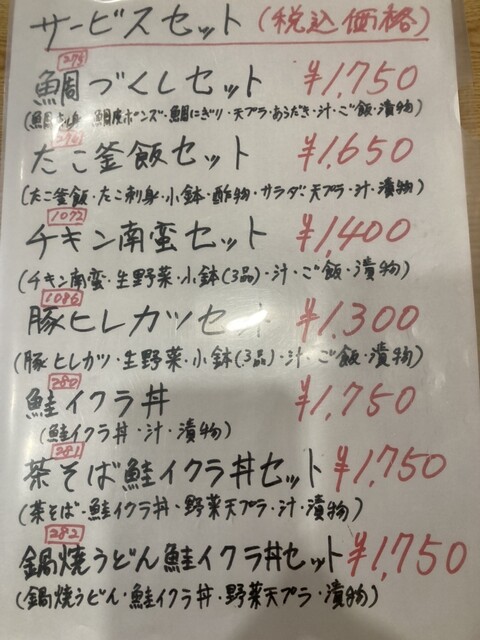 サービスセット (税込価格)
274
鯛づくしセット ¥1,750
(鯛お刺身・鯛皮ポンズ・鯛にぎり・天プラ・あらだき・汁・ご飯・漬物)
276
たこ釜飯セット ¥1,650
(たこ釜飯・たこ刺身・小鉢・酢物・サラダ・天プラ・汁・漬物)
1072
チキン南蛮セット ¥1,400
(チキン南蛮・生野菜・小鉢(3品)・汁・ご飯・漬物)
1086
豚ヒレカツセット ¥1,300
(豚ヒレカツ・生野菜・小鉢(3品)・汁・ご飯・漬物)
280
鮭イクラ丼 ¥1,750
(鮭イクラ丼・汁・漬物)
281
茶そば鮭イクラ丼セット ¥1,750
(茶そば・鮭イクラ丼・野菜天プラ・汁・漬物)
282
鍋焼うどん鮭イクラ丼セット ¥1,750
(鍋焼うどん・鮭イクラ丼・野菜天プラ・漬物)